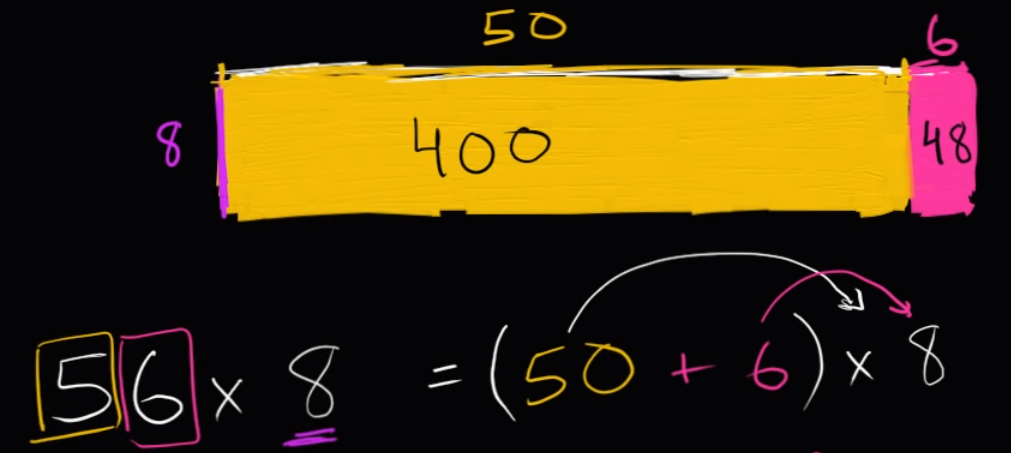 50 6
8 400 48
56 × 8 = (50 + 6) × 8